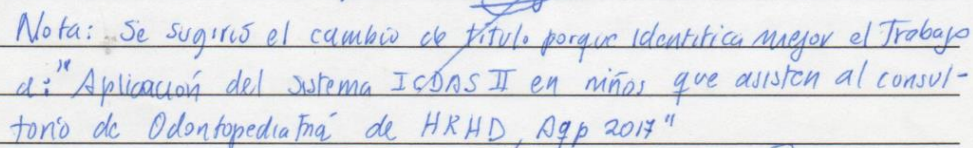 Nota: Se sugirió el cambio de título porque identifica mejor el Trabajo
a: "Aplicación del sistema ICDAS II en niños que asisten al consul-
torio de Odontopediatría de HRHD, Aqp 2017"